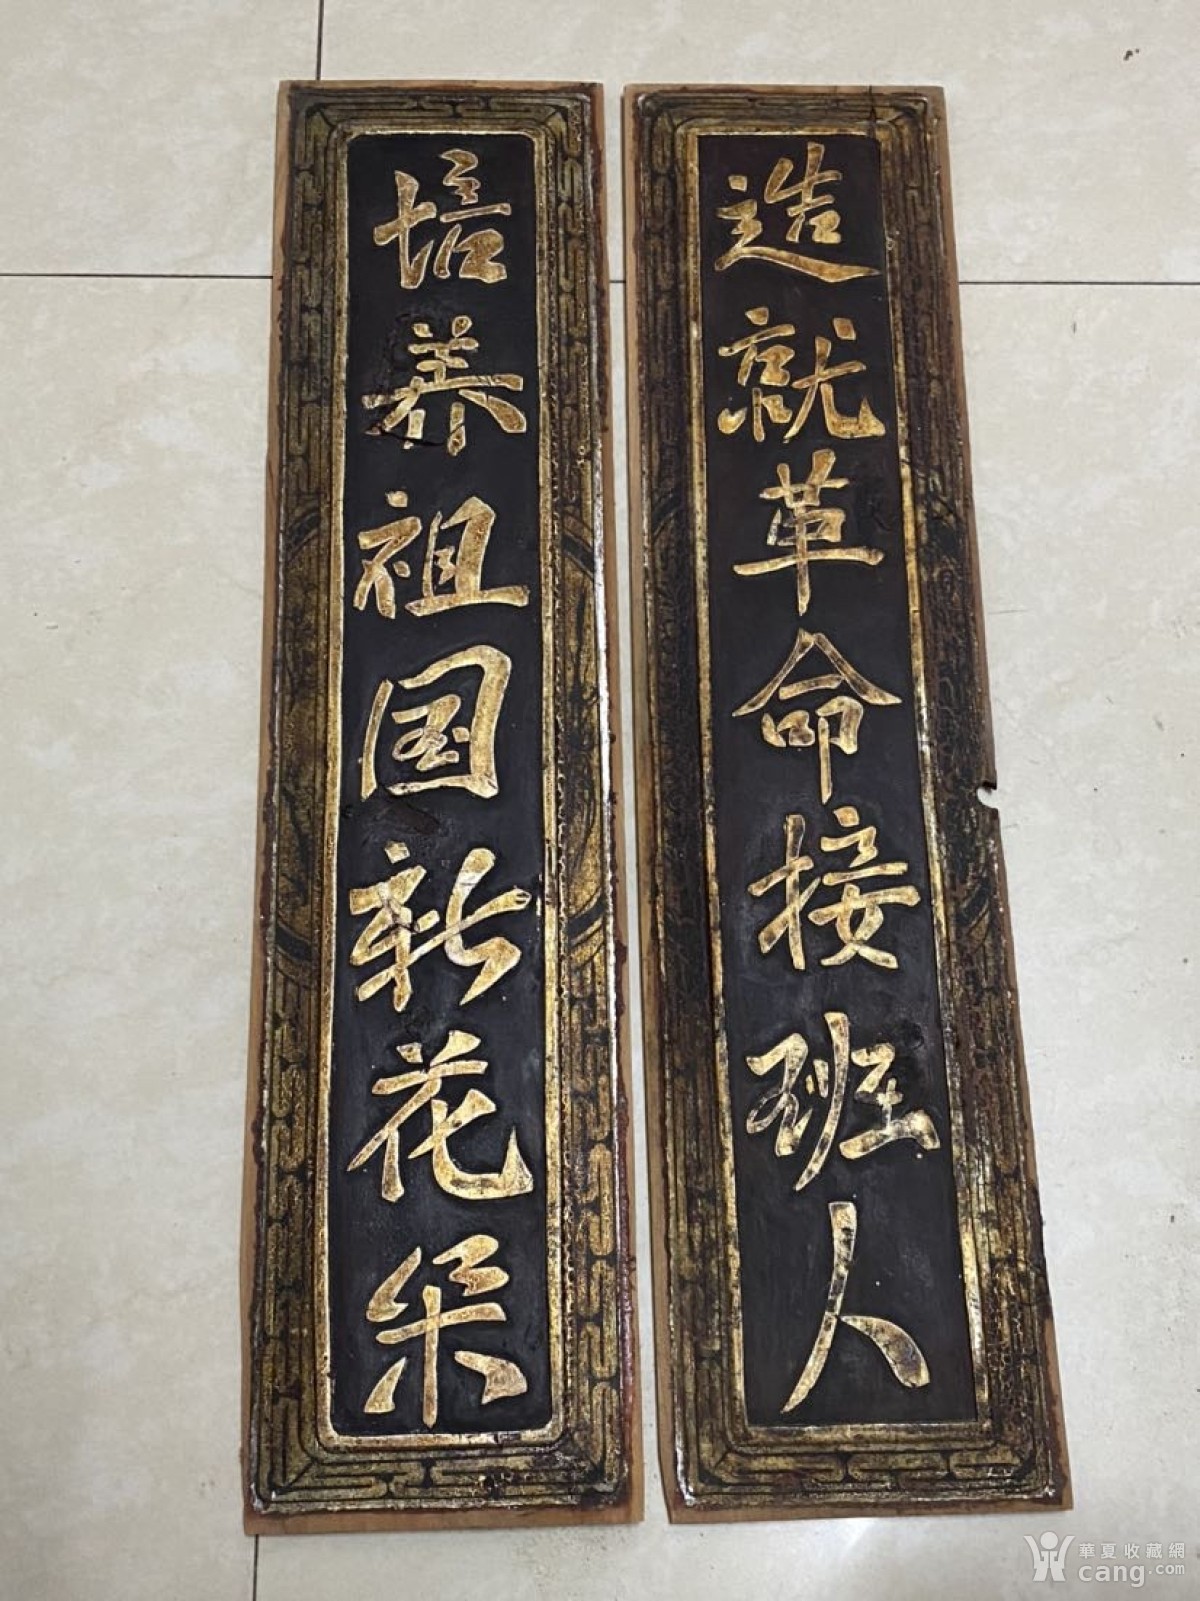 造就革命接班人
培养祖国新花朵
華夏收藏網
cang.com